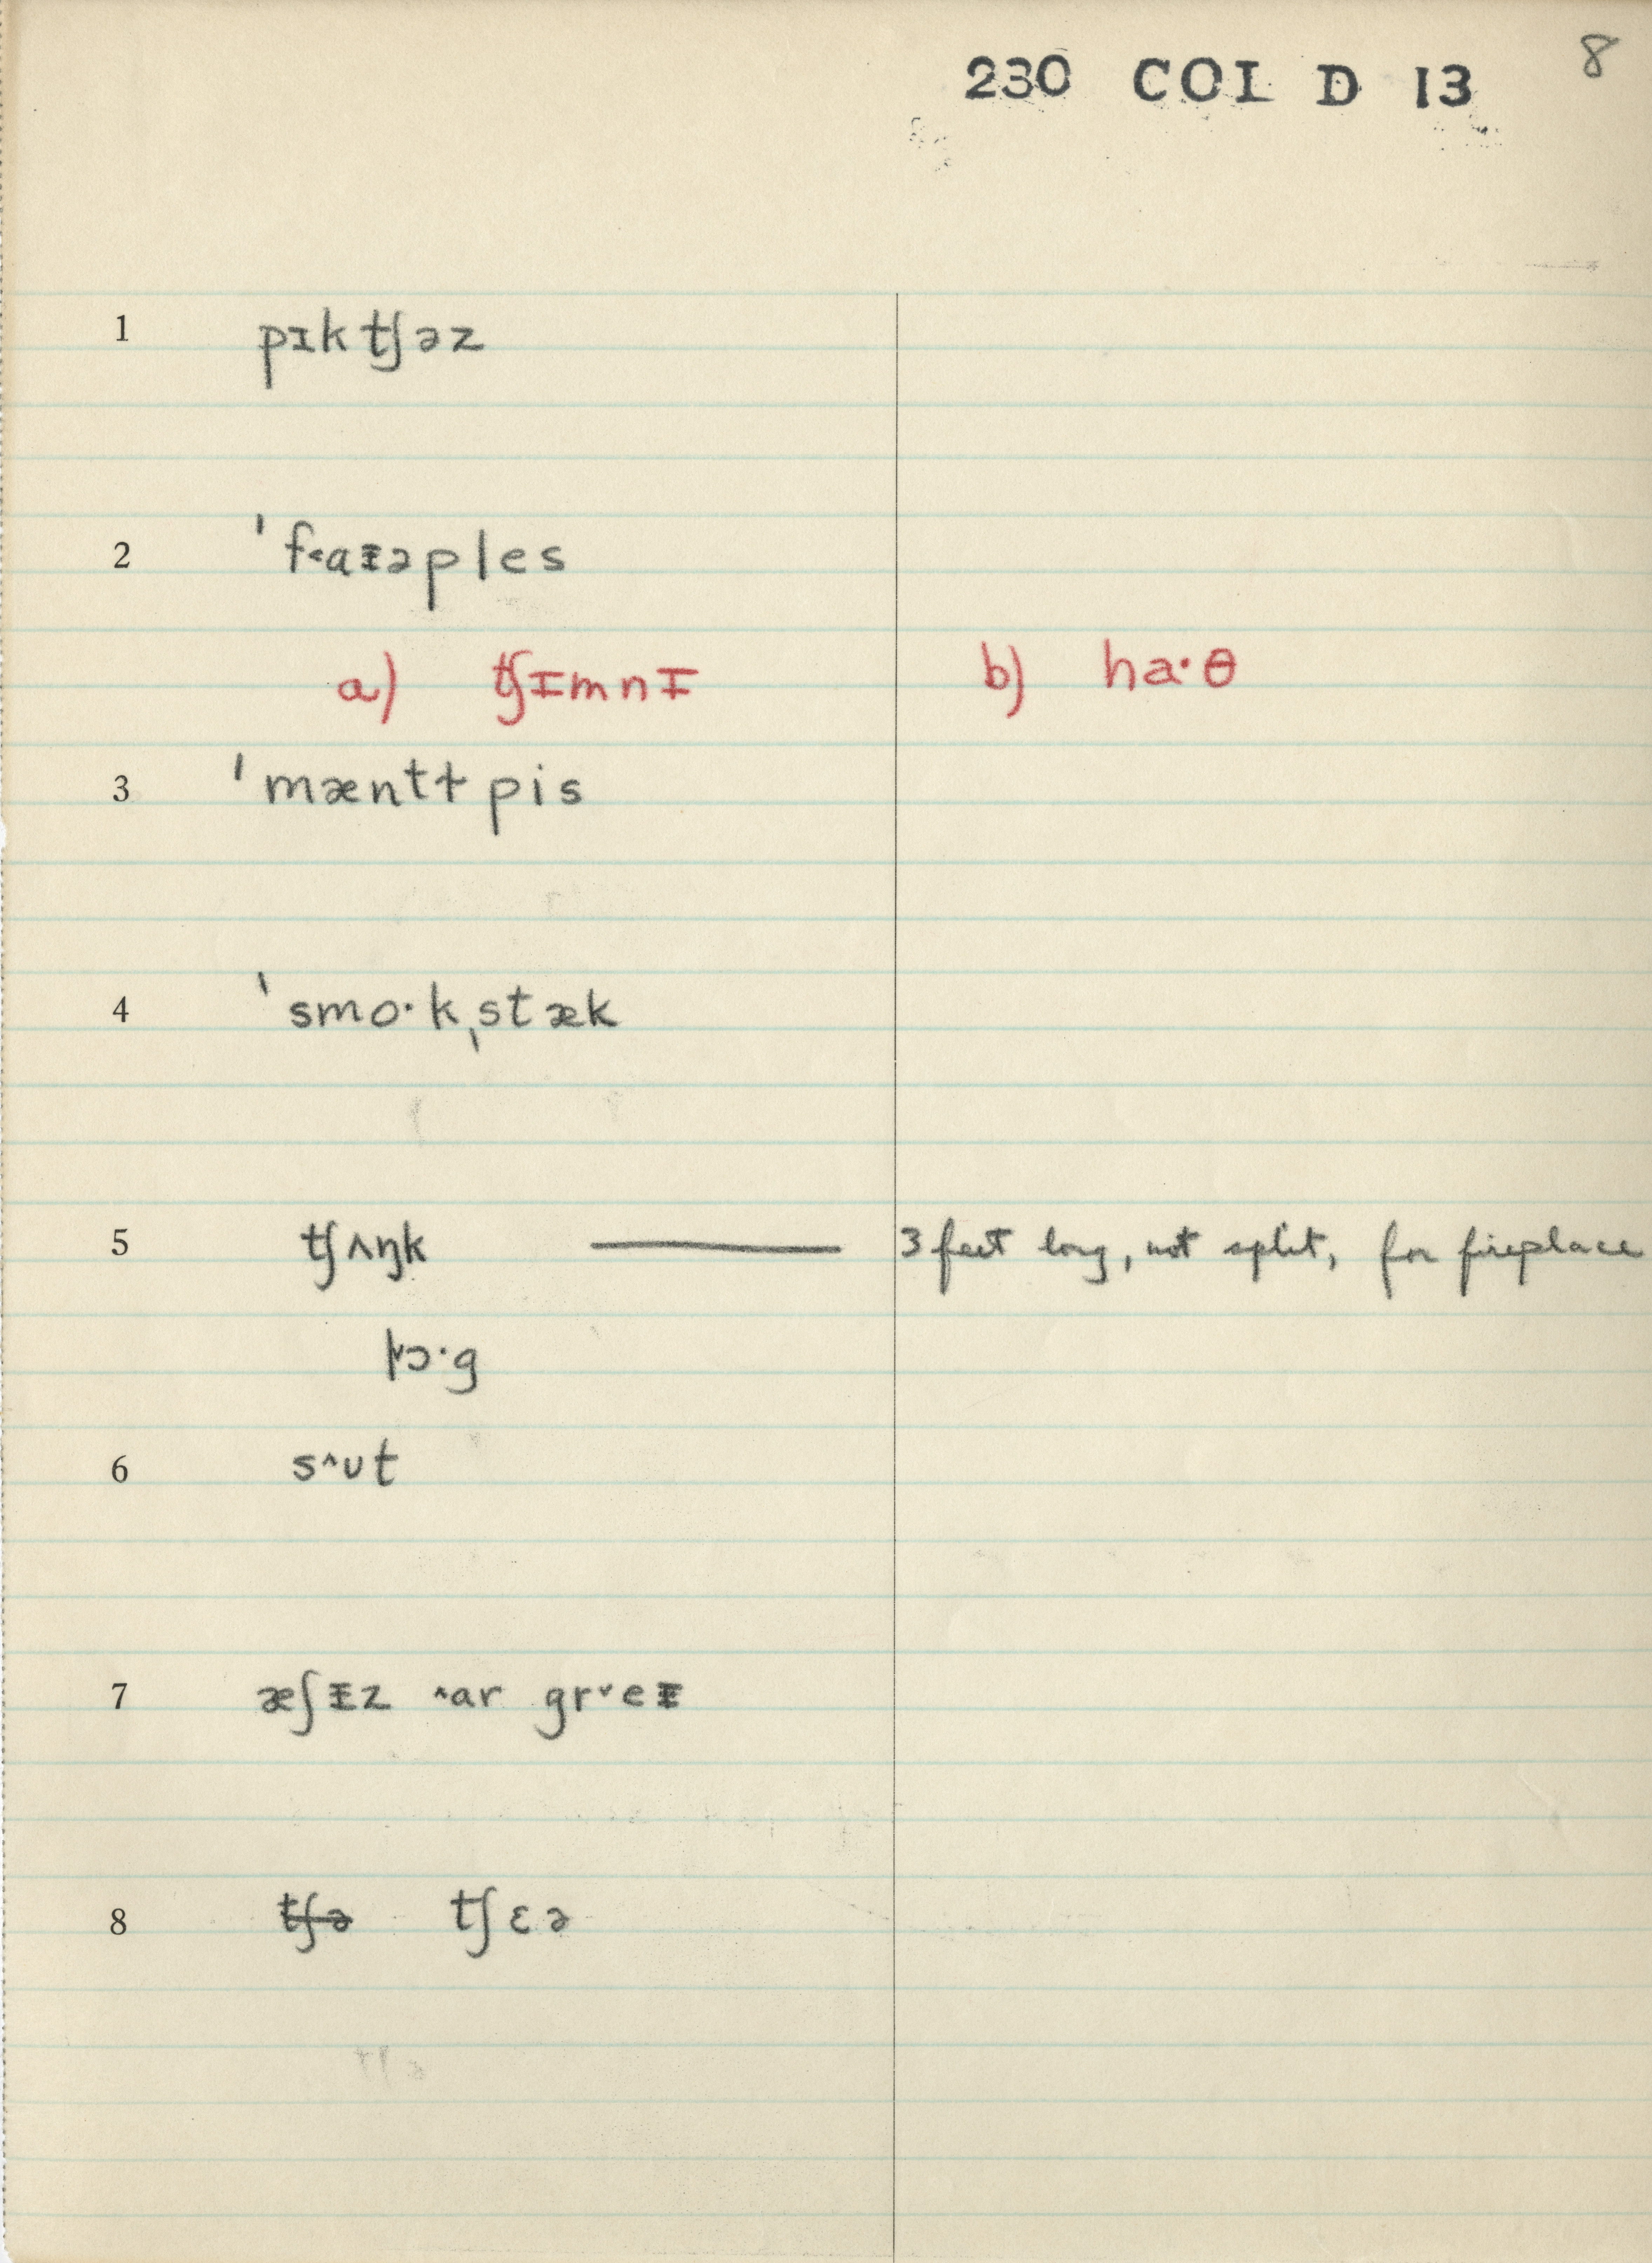 230 COL D 13 8
1 pɪktʃəz
2 ˈf˂aᵻəples
a) tʃᵻmnᵻ b) ha·θ
3 ˈmæntɫpis
4 ˈsmo·kˌstæk
5 tʃʌŋk — 3 feet long, not split, for fireplace
l˅ɔ·g
6 s^ʊt
7 æʃᵻz ^ar gr˅eᵻ
8 tʃə tʃɛə